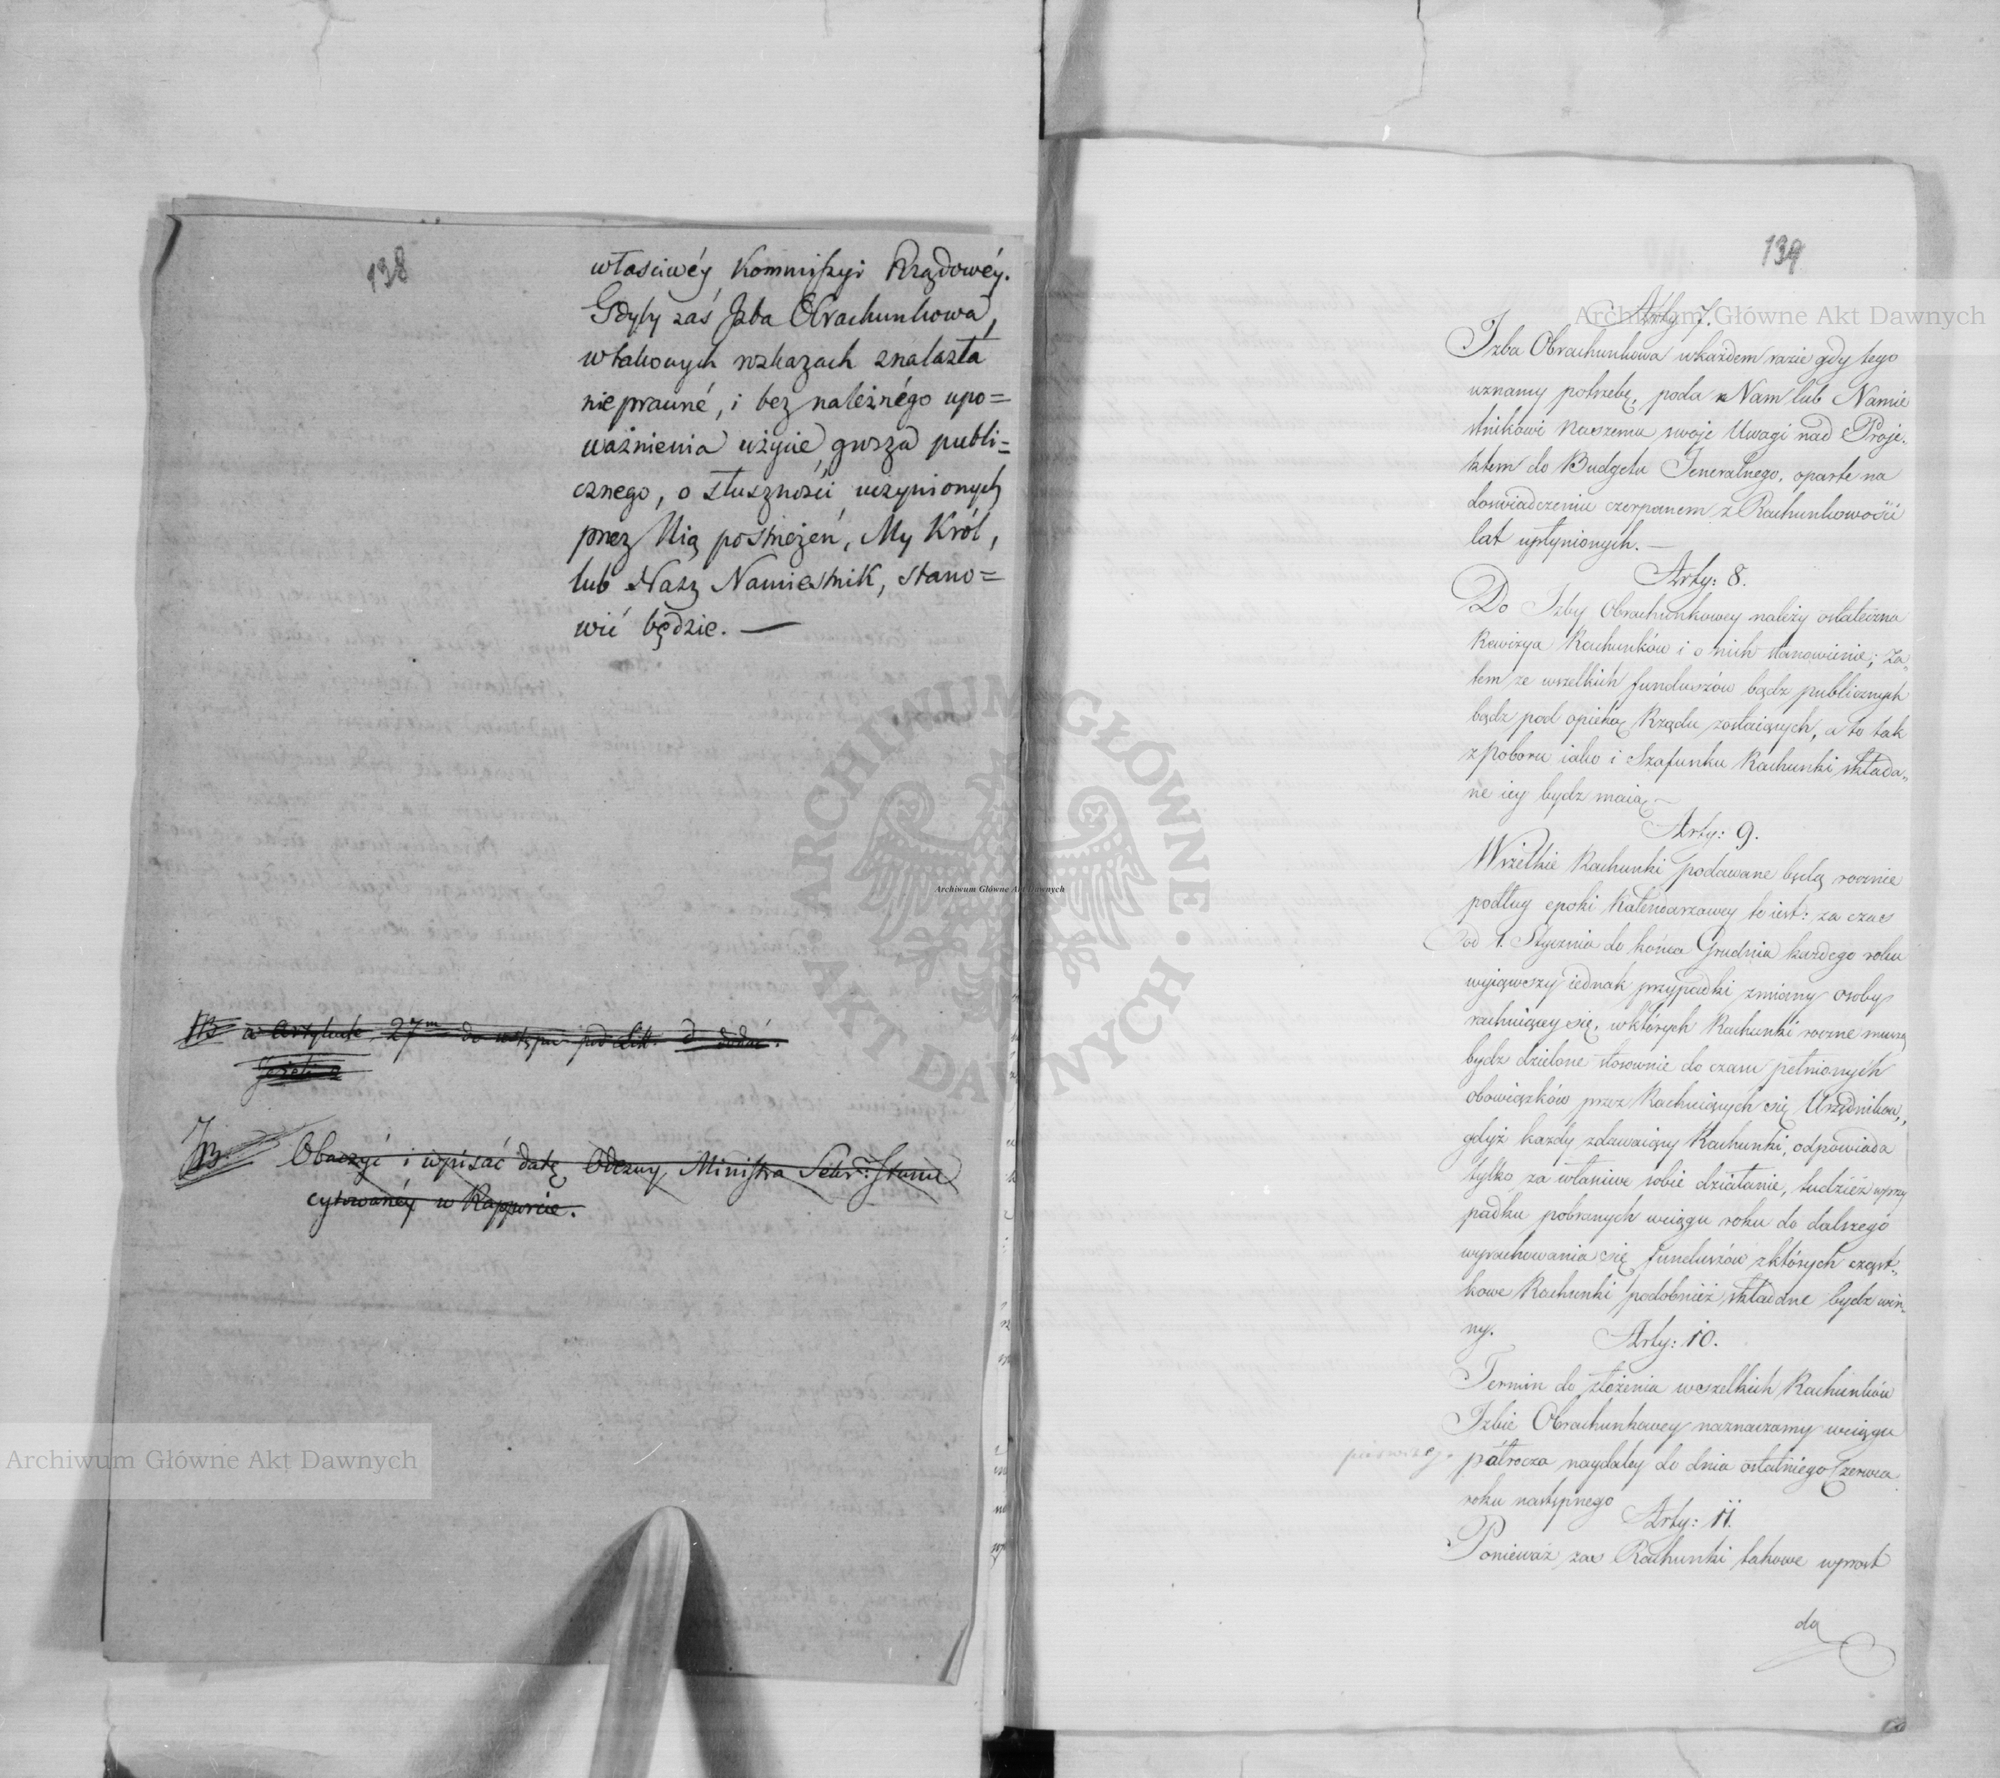 138
właściwéy Kommissyi Rządowéy.
Gdyby zaś Izba Obrachunkowa,
wtakowych rozkazach znalazła
nieprawné, i bez należnégo upo=
ważnienia użycie grosza publi=
cznego, o słuszności uczynionych
przez Nią postrzeżeń, My Król,
lub Nasz Namiestnik, stano=
wić będzie. —
NB a Artykule 27m do wstępu pod Litt: d dodać.
Jeżeli
NB Obaczyć i wpisać datę Odezwy Ministra Sekr: Stanu
cytowanéy w Rapporcie.
139
Arty 7.
Izba Obrachunkowa wkażdem razie gdy tego
uznamy potrzebę, poda Nam lub Namie
stnikowi Naszemu swoje Uwagi nad Proje,
ktem do Budgetu Jeneralnego, oparte na
doswiadczeniu czerpanem z Rachunkowości
lat upłynionych. —
Arty: 8.
Do Izby Obrachunkowey należy ostateczna
Rewizya Rachunków i o nich stanowienie; Za„
tem ze wszelkich funduszów bądz publicznych
bądz pod opieką Rządu zostaiących, a to tak
z poboru iako i Szafunku Rachunki składa„
ne iey bydz maią —
Arty: 9.
Wszelkie Rachunki podawane będą rocznie
podług epoki Kalendarzowey to iest: za czas
od 1. Stycznia do końca Grudnia każdego roku
wyiąwszy iednak przypadki zmiany osoby
rachuiącey się, wktórych Rachunki roczne muszą
bydz dzielone stosownie do czasu pełnionych
obowiązków przez Rachuiących się Urzędników,
gdyż każdy zdawaiący Rachunki, odpowiada
tylko za właściwe sobie działanie, tudzież wprzy
padku pobranych wciągu roku do dalszego
wyrachowania się funduszów zktórych cząst„
kowe Rachunki podobnież składane bydz win„
ny.
Arty: 10.
Termin do złożenia wszelkich Rachunków
Izbie Obrachunkowey naznaczamy wciągu
pierwszego
półrocza naydaley do dnia ostatniego Czerwca
roku następnego
Arty: 11.
Ponieważ zaś Rachunki takowe wprost
do
Archiwum Główne Akt Dawnych
Archiwum Główne Akt Dawnych
Archiwum Główne Akt Dawnych
ARCHIWUM GŁÓWNE · AKT DAWNYCH ·